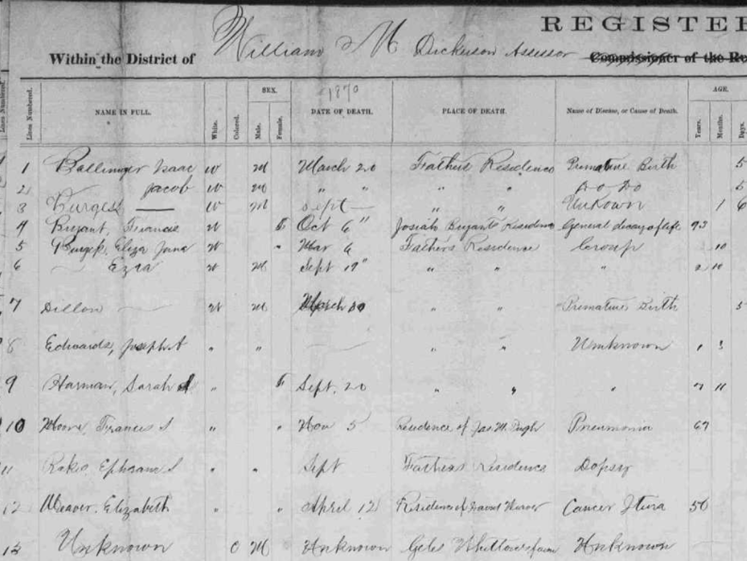 REGISTER
Within the District of William M Dickerson Assessor Commissioner of the Re
Lines Numbered. NAME IN FULL. White. Colored. SEX. Male. Female. 1870 DATE OF DEATH. PLACE OF DEATH. Name of Disease, or Cause of Death. AGE. Years. Months. Days.
1 Ballinger Isaac W M March 20 Fathers Residence Premature Birth 5
2 Jacob W M " " " " Do Do 5
3 Burgess — W M Sept — " " Unknown 1 6
4 Bryant, Francis W F Oct 6" Josiah Bryants Residence General decay of life 93
5 Eliza Jane W " Mar 6 Fathers Residence Croup 10
6 — Ezra W M Sept 19" " " " 2 10
7 Dillon — W M March 30 " " Premature Birth 5
8 Edwards, Joseph A " " — " " Unknown 1 3
9 Harman, Sarah " F Sept. 20 " " " 11
10 Moore, Frances S " " Nov 5 Residence of Jas M. Pugh Pneumonia 67
11 Ephram S " " Sept Fathers Residence Dopsy
12 Weaver, Elizabeth " " April 12 Residence of Weaver Cancer 56
13 Unknown C M Unknown Giles Unknown